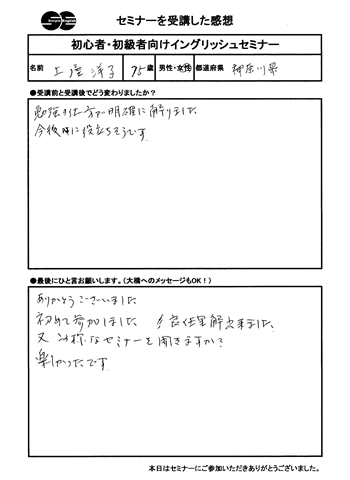 セミナーを受講した感想
初心者・初級者向けイングリッシュセミナー
名前 土屋 洋子 75歳 男性・女性 都道府県 神奈川県
●受講前と受講後でどう変わりましたか？
勉強の仕方が明確に解りました
今後に役立ちそうです
●最後にひと言お願いします。（大橋へのメッセージもOK！）
ありがとうございました
初めて参加しました
又 なセミナーを開きますか？
楽しかったです
本日はセミナーにご参加いただきありがとうございました。